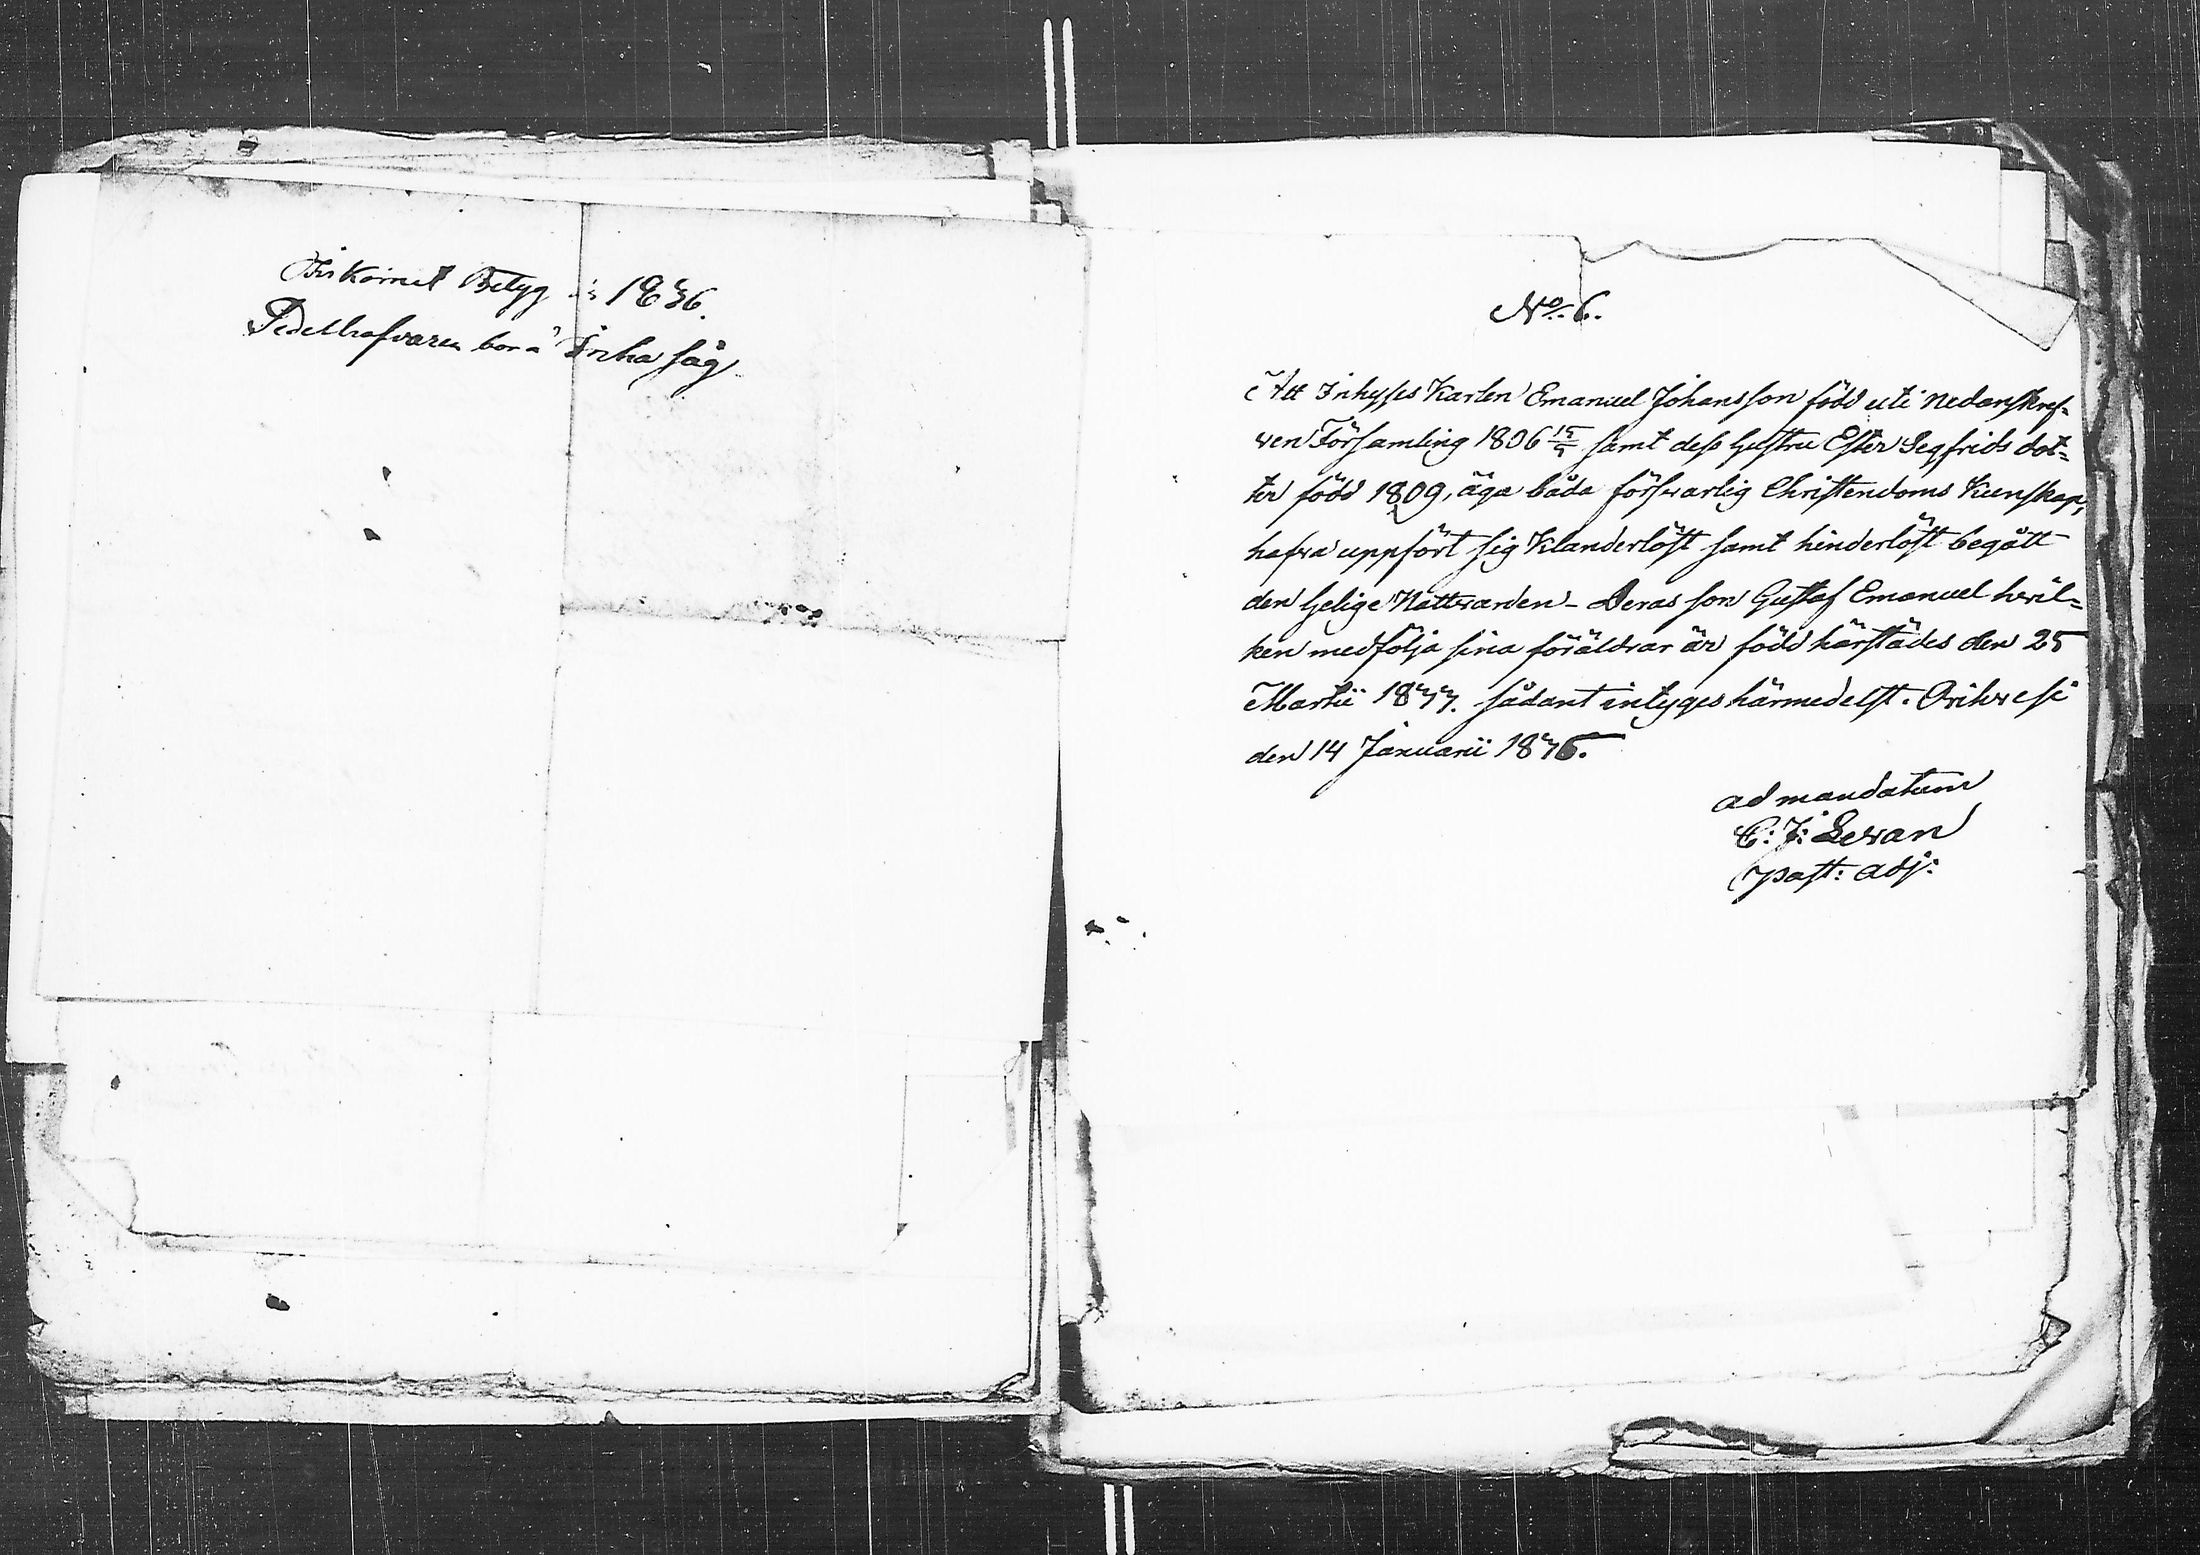 Inkomit Betyg 1836.
Pedelhafvaren bor å Inha såg
No. 6.
Att Inhysses Karlen Emanuel Johansson född uti nedanskref-
ven Församling 1806 samt dess Hustru Ester Segfrids dot-
ter född 1809, äga båda försvarlig Christendoms Kunskap,
hafva uppfört sig Klanderlöst samt hinderlöst begått
den Helige Nattvarden - Deras son Gustaf Emanuel hvil-
ken medfölja sina föräldrar är född härstädes den 25
Martii 1833. sådant intyges härmedelst. Orihvesi
den 14 Januarii 1836.
ad mandatum
C: J: Levan
past: adj: